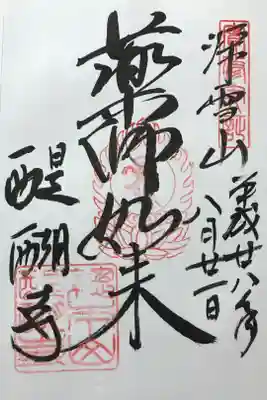 深雪山
平成廿八年
八月廿一日
薬師如来
醍醐寺